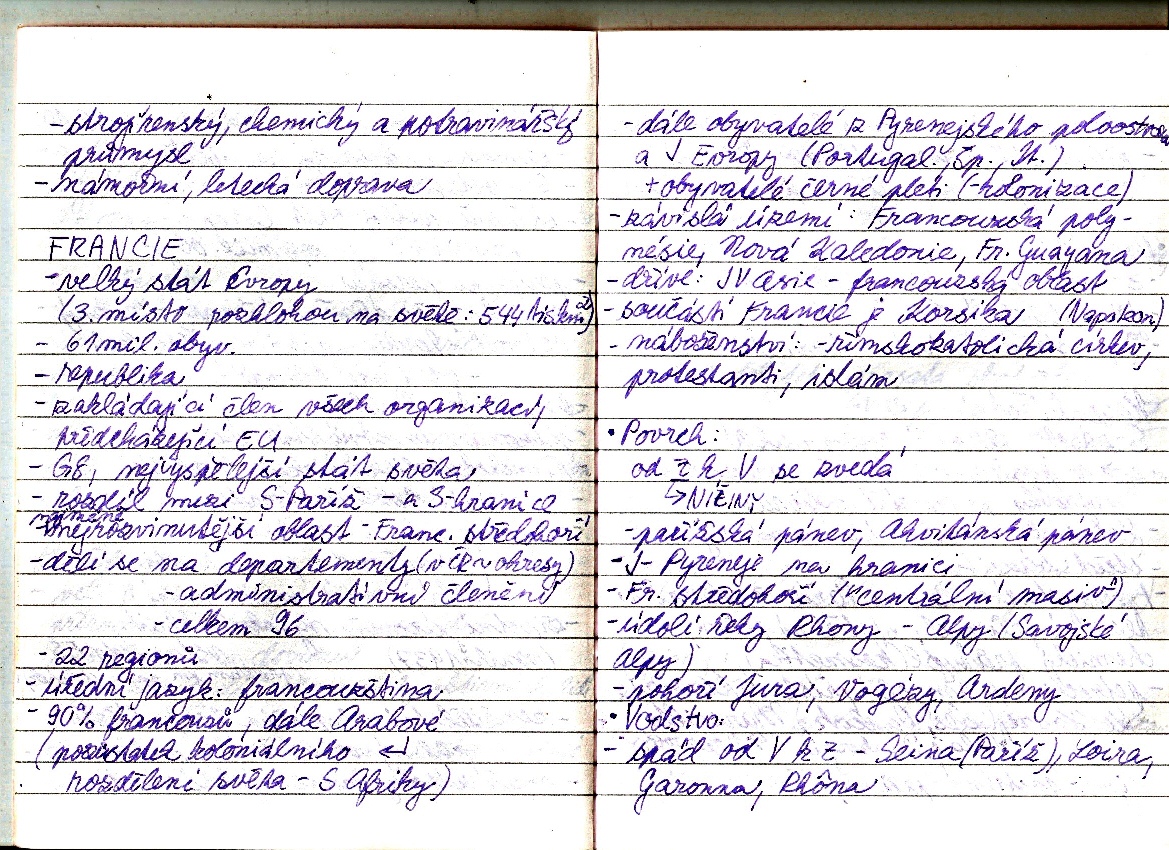 - strojírenský, chemický a potravinářský
průmysl
- námořní, letecká doprava
FRANCIE
- velký stát Evropy
(3. místo rozlohou na světe: 544 tis km²)
- 61 mil. obyv.
- republika
- zakládající člen všech organizací,
předcházející EU
- G8, nejvyspělejší stát světa,
- rozdíl mezi S-Paříž - a S-hranice
nejméně
nejrozvinutější oblast - Franc. středohoří
- dělí se na departementy (v ČR ~ okresy)
- administrativní členění
- celkem 96
- 22 regionů
- úřední jazyk: francouzština
- 90% francouzů, dále Arabové
(pozůstatek koloniálního ↵
rozdělení světa - S Afriky)
- dále obyvatelé z Pyrenejského poloostrova
a J Evropy (Portugal., Šp., It.)
+ obyvatelé černé pleti (-kolonizace)
- závislá území: Francouzská poly-
nésie, Nová Kaledonie, Fr. Guayana
- dříve: JV Asie - francouzský oblast
- součástí Francie je Korsika (Napoleon)
- náboženství: - římskokatolická církev,
protestanti, islám
• Povrch:
od Z k V se zvedá
↳ NÍŽINY
- pařížská pánev, Akvitánská pánev
- J - Pyreneje na hranici
- Fr. středohoří ("centrální masiv")
- údolí řeky Rhony - Alpy (Savojské
Alpy)
- pohoří Jura, Vogézy, Ardeny
• Vodstvo:
- spád od V k Z - Seina (Paříž), Loira,
Garonna, Rhôna